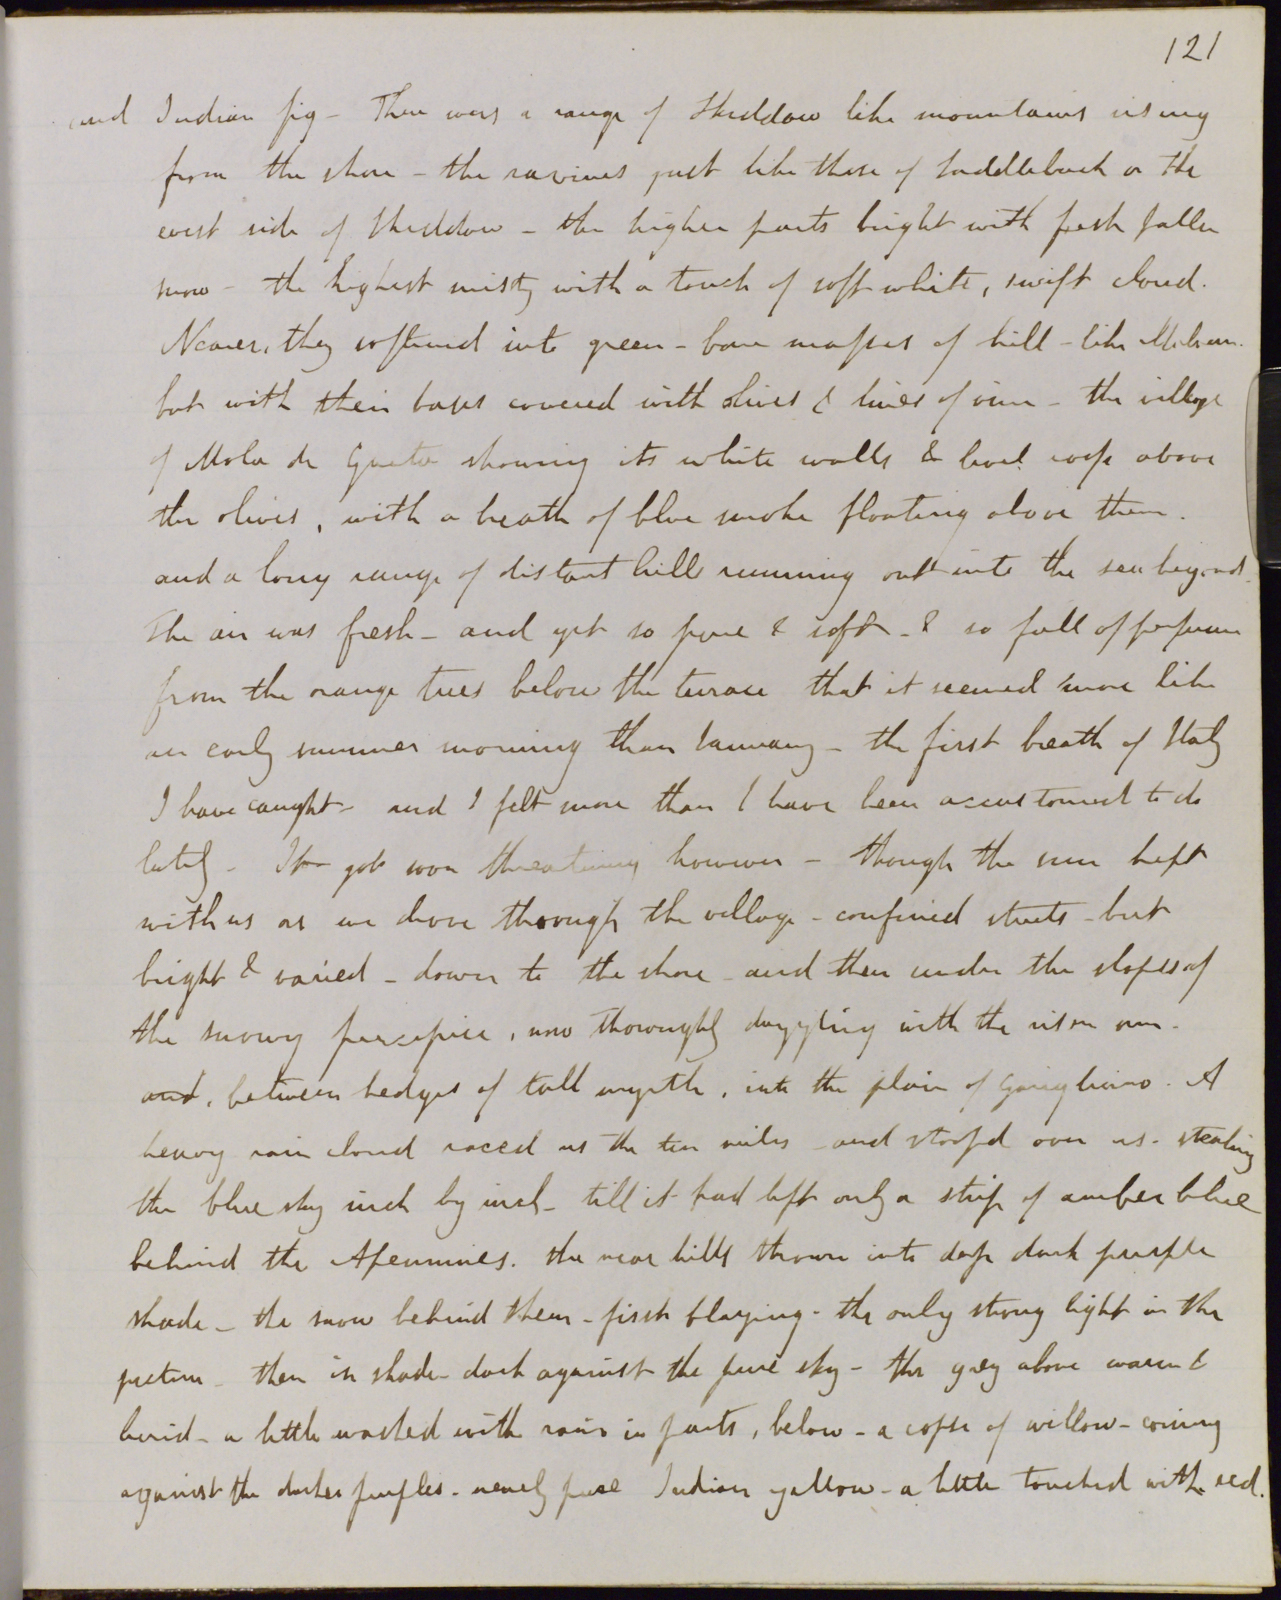 121
and Indian fig - There was a range of Skiddaw like mountains rising
from the shore - the ravines just like those of Saddleback or the
east side of Skiddaw - the higher parts bright with fresh fallen
snow - the highest misty with a touch of soft white, swift cloud.
Nearer, they softened into green - bare masses of hill - like Malvern.
but with their bases covered with olives & lines of vine - the village
of Mola di Gaeta showing its white walls & level roofs above
the olives, with a breath of blue smoke floating above them.
and a long range of distant hills running out into the sea beyond.
The air was fresh - and yet so pure & soft - & so full of perfume
from the orange trees below the terrace that it seemed more like
an early summer morning than January - the first breath of Italy
I have caught - and I felt more than I have been accustomed to do
lately - It got soon threatening however - though the sun kept
with us as we drove through the village - confined streets - but
bright & varied - down to the shore - and then under the slopes of
the snowy precipice, now thoroughly dazzling with the risen sun.
and, between hedges of tall myrtle, into the plain of Garigliano. A
heavy rain cloud raced us the ten miles - and stooped over us - stealing
the blue sky inch by inch - till it had left only a strip of amber blue
behind the Apennines. the near hills thrown into deep dark purple
shade - the snow behind them - first blazing - the only strong light in the
picture - then in shade - dark against the pure sky - the grey above warm &
lurid - a little washed with rain in parts, below - a copse of willow - coming
against the darker purples - nearly pure Indian yellow - a little touched with red.